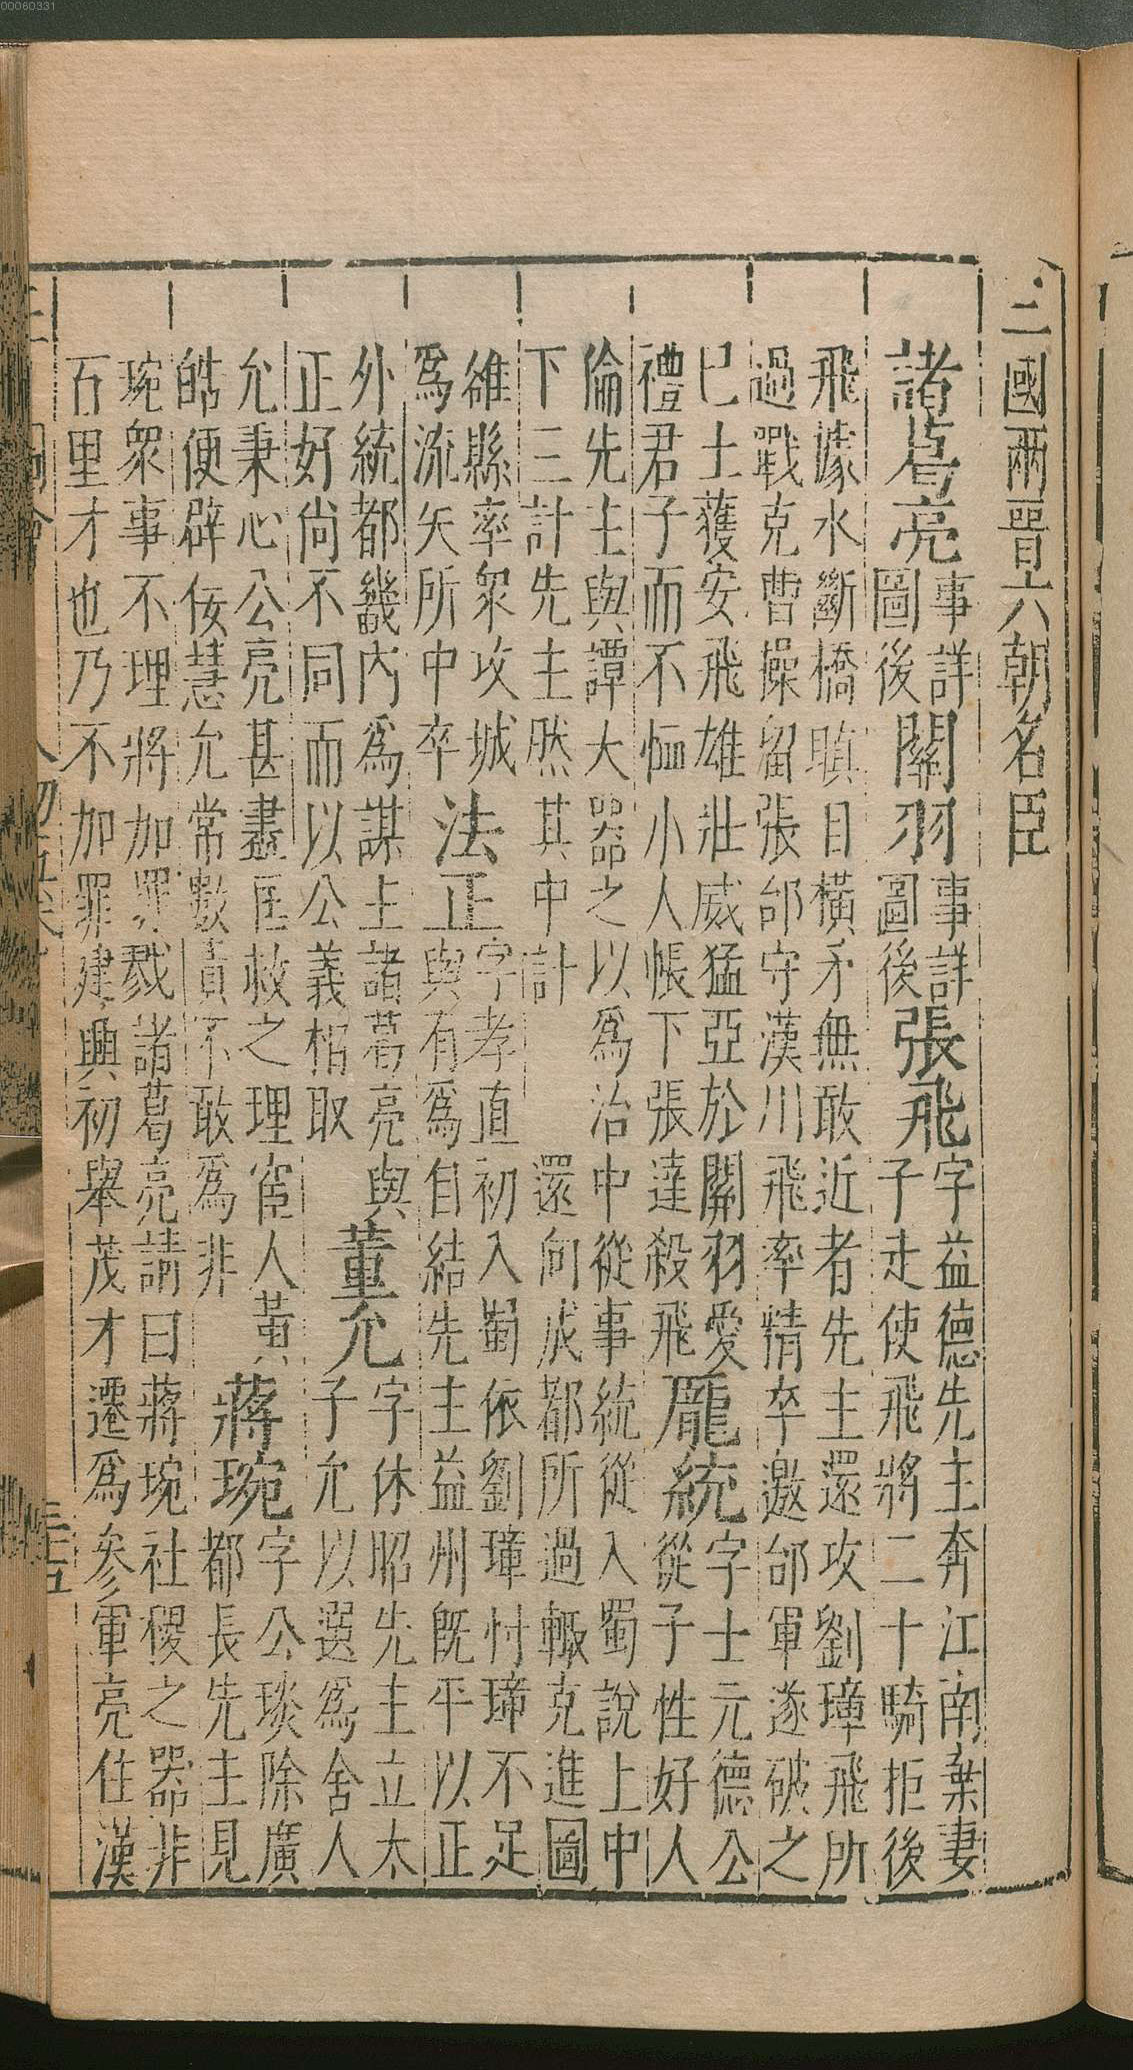 三國兩晋六朝名臣
諸葛亮事詳圖後關羽事詳圖後張飛字益德先主奔江南棄妻子走使飛將二十騎拒後
飛據水斷橋瞋目橫矛無敢近者先主還攻劉璋飛所
過戰克曹操留張郃守漢川飛率精卒邀郃軍遂破之
巴士獲安飛雄壯威猛亞於關羽愛禮君子而不恤小人帳下張達殺飛龐統字士元德公從子性好人
倫先主與譚大器之以爲治中從事統從入蜀說上中
下三計先主然其中計還向成都所過輙克進圖
雒縣率眾攻城爲流矢所中卒法正字孝直初入蜀依劉璋忖璋不足與有爲自結先主益州既平以正
外統都畿內爲謀主諸葛亮與正好尚不同而以公義相取董允字休昭先主立太子允以選爲舍人
允秉心公亮甚盡匡救之理宦人黃皓便辟佞慧允常數責不敢爲非蔣琬字公琰除廣都長先主見
琬眾事不理將加罪戮諸葛亮請曰蔣琬社稷之器非
百里才也乃不加罪建興初舉茂才遷爲參軍亮住漢
00060331